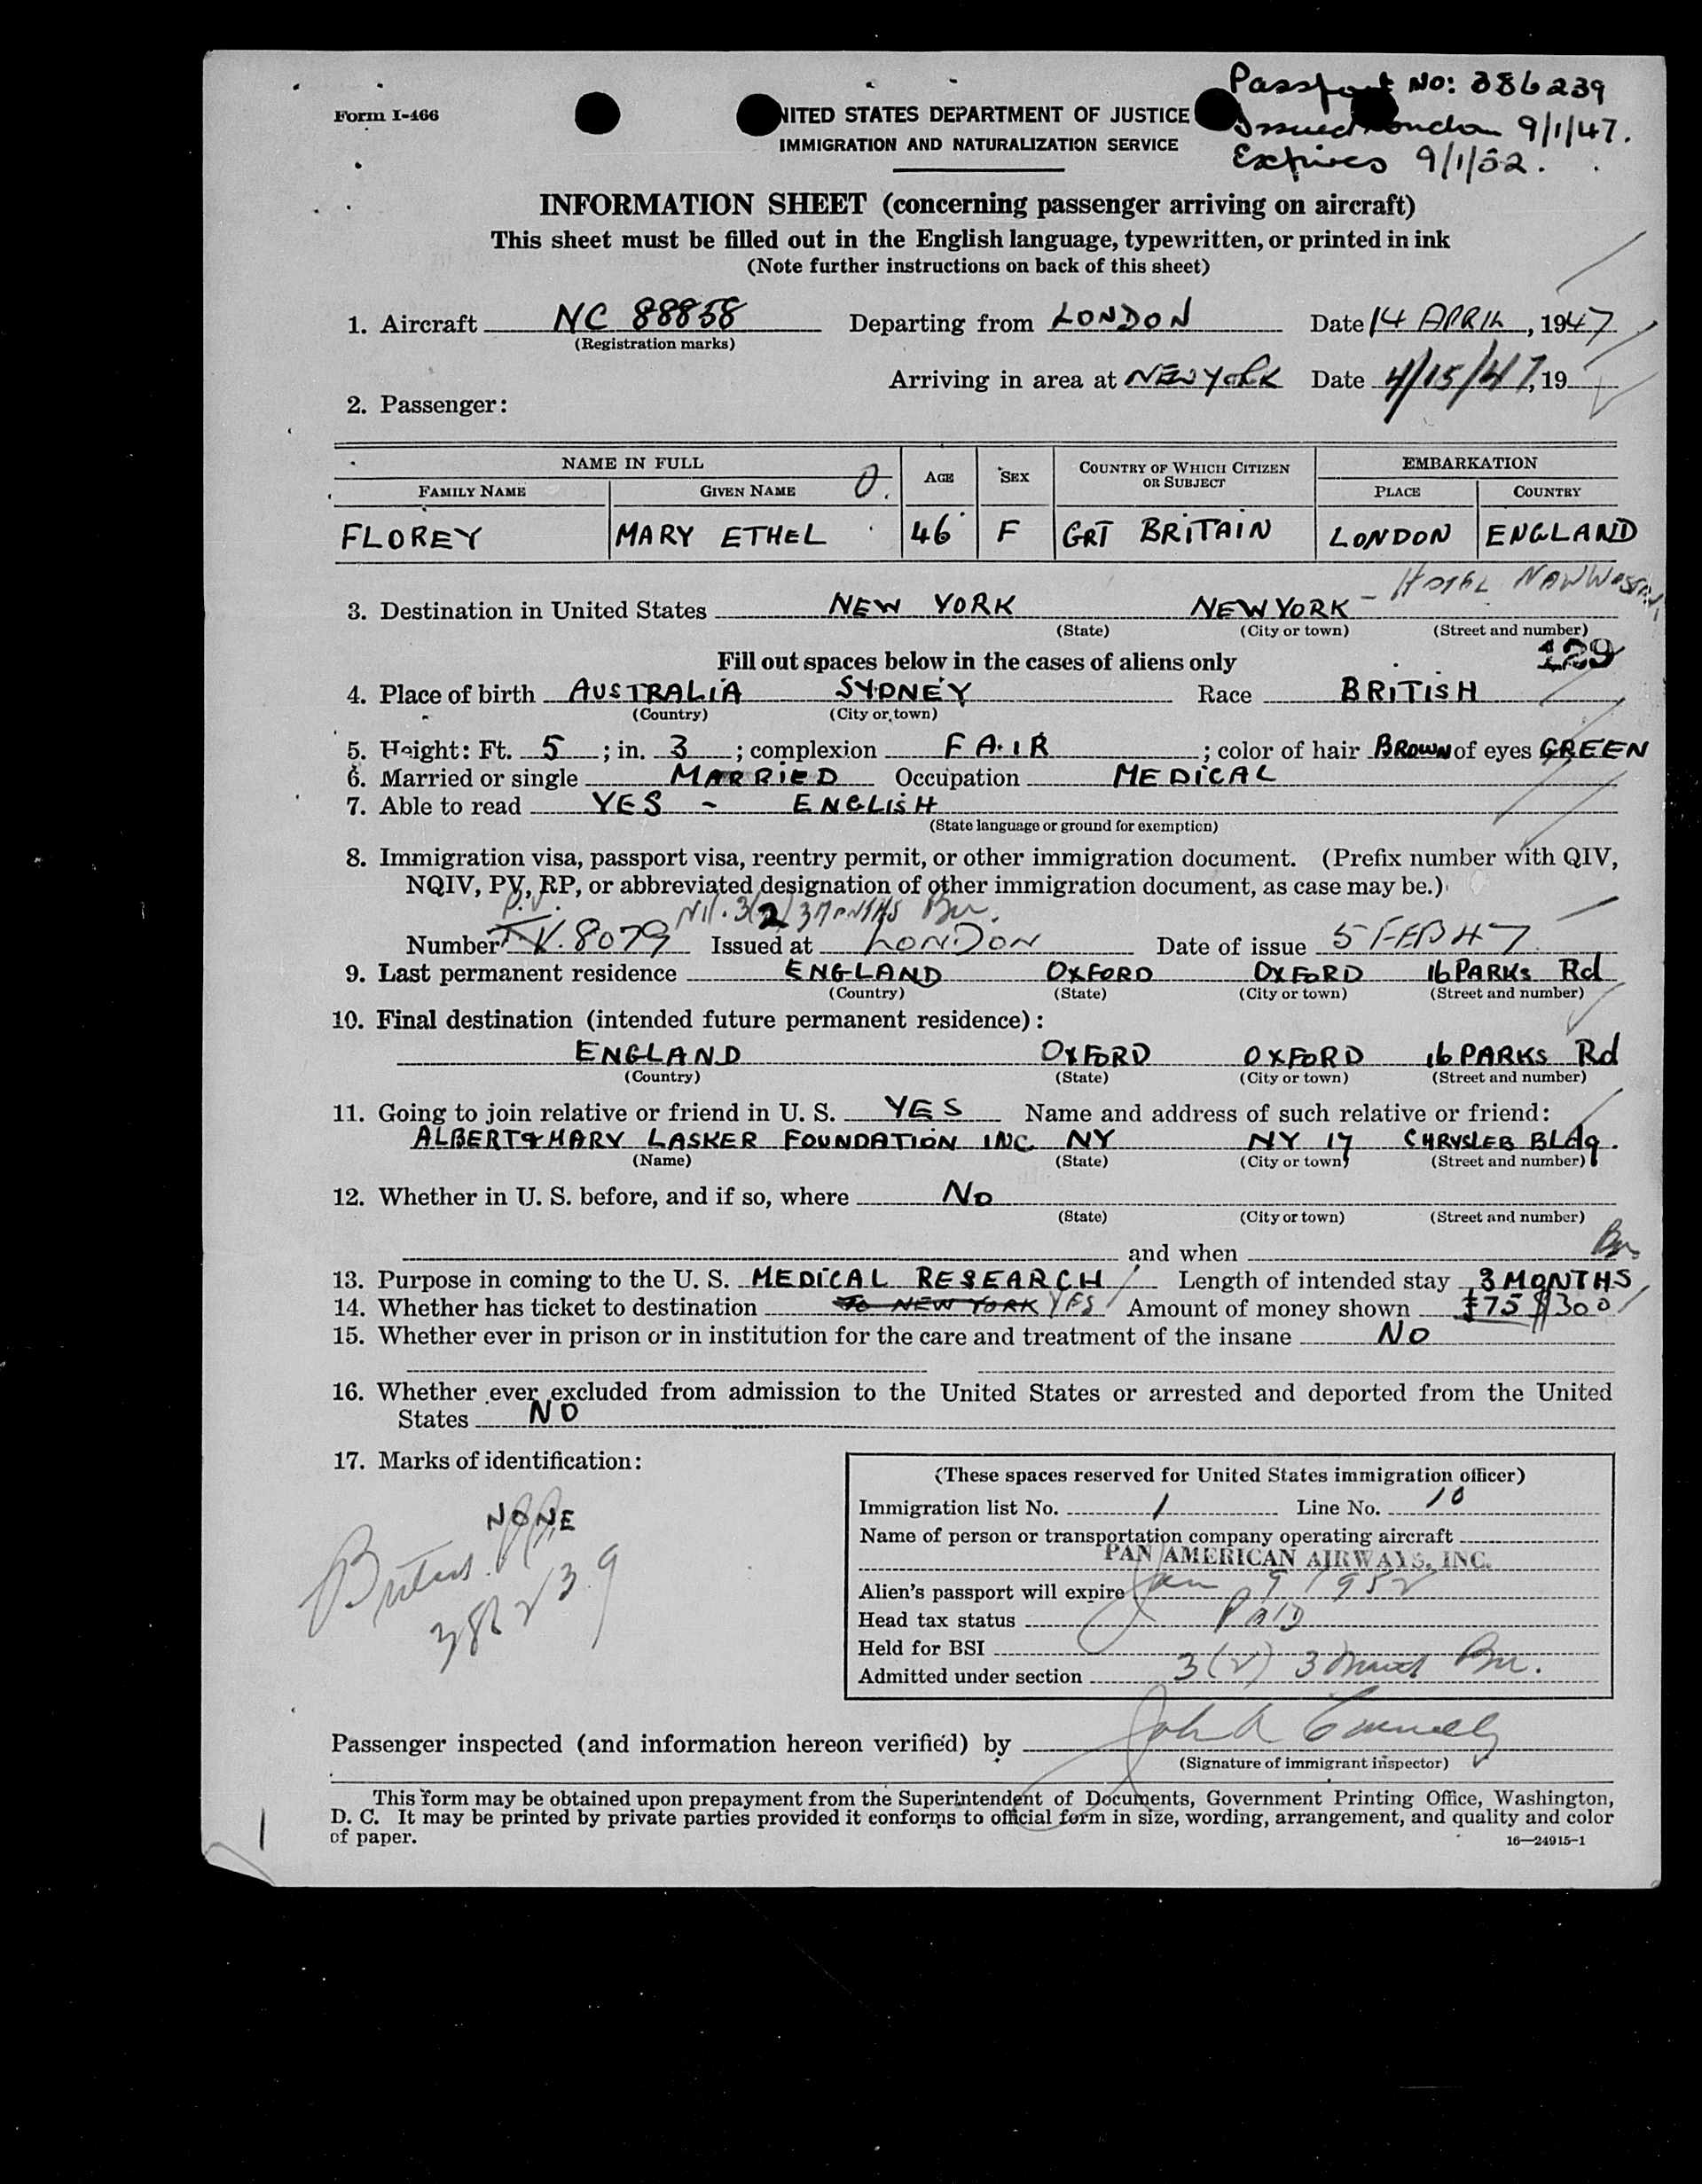 Passport No: 386239
Form I-466
UNITED STATES DEPARTMENT OF JUSTICE
Issued London 9/1/47.
IMMIGRATION AND NATURALIZATION SERVICE
Expires 9/1/52.
INFORMATION SHEET (concerning passenger arriving on aircraft)
This sheet must be filled out in the English language, typewritten, or printed in ink
(Note further instructions on back of this sheet)
1. Aircraft NC 88858 Departing from LONDON Date 14 APRIL, 1947
(Registration marks)
Arriving in area at NEW YORK Date 4/15/47, 19
2. Passenger:
NAME IN FULL O. AGE SEX COUNTRY OF WHICH CITIZEN OR SUBJECT EMBARKATION
FAMILY NAME GIVEN NAME PLACE COUNTRY
FLOREY MARY ETHEL 46 F GRT BRITAIN LONDON ENGLAND
3. Destination in United States NEW YORK NEW YORK - HOTEL
(State) (City or town) (Street and number)
Fill out spaces below in the cases of aliens only 129
4. Place of birth AUSTRALIA SYDNEY Race BRITISH
(Country) (City or town)
5. Height: Ft. 5; in. 3; complexion FAIR; color of hair BROWN of eyes GREEN
6. Married or single MARRIED Occupation MEDICAL
7. Able to read YES - ENGLISH
(State language or ground for exemption)
8. Immigration visa, passport visa, reentry permit, or other immigration document. (Prefix number with QIV,
NQIV, PV, RP, or abbreviated designation of other immigration document, as case may be.)
P.V. 3(2) 3 MONTHS
Number V. 8079 Issued at LONDON Date of issue 5 FEB 47
9. Last permanent residence ENGLAND OXFORD OXFORD 16 PARKS Rd
(Country) (State) (City or town) (Street and number)
10. Final destination (intended future permanent residence):
ENGLAND OXFORD OXFORD 16 PARKS Rd
(Country) (State) (City or town) (Street and number)
11. Going to join relative or friend in U. S. YES Name and address of such relative or friend:
ALBERT & MARY LASKER FOUNDATION INC NY NY 17 CHRYSLER BLdg.
(Name) (State) (City or town) (Street and number)
12. Whether in U. S. before, and if so, where No
(State) (City or town) (Street and number)
and when
13. Purpose in coming to the U. S. MEDICAL RESEARCH Length of intended stay 3 MONTHS
14. Whether has ticket to destination TO NEW YORK YES Amount of money shown £75 $300
15. Whether ever in prison or in institution for the care and treatment of the insane NO
16. Whether ever excluded from admission to the United States or arrested and deported from the United
States NO
17. Marks of identification:
NONE
British
386239
(These spaces reserved for United States immigration officer)
Immigration list No. 1 Line No. 10
Name of person or transportation company operating aircraft
PAN AMERICAN AIRWAYS, INC.
Alien's passport will expire Jan 9 1952
Head tax status PAID
Held for BSI
Admitted under section 3(2) 3
Passenger inspected (and information hereon verified) by
(Signature of immigrant inspector)
This form may be obtained upon prepayment from the Superintendent of Documents, Government Printing Office, Washington,
D. C. It may be printed by private parties provided it conforms to official form in size, wording, arrangement, and quality and color
of paper.
16—24915-1